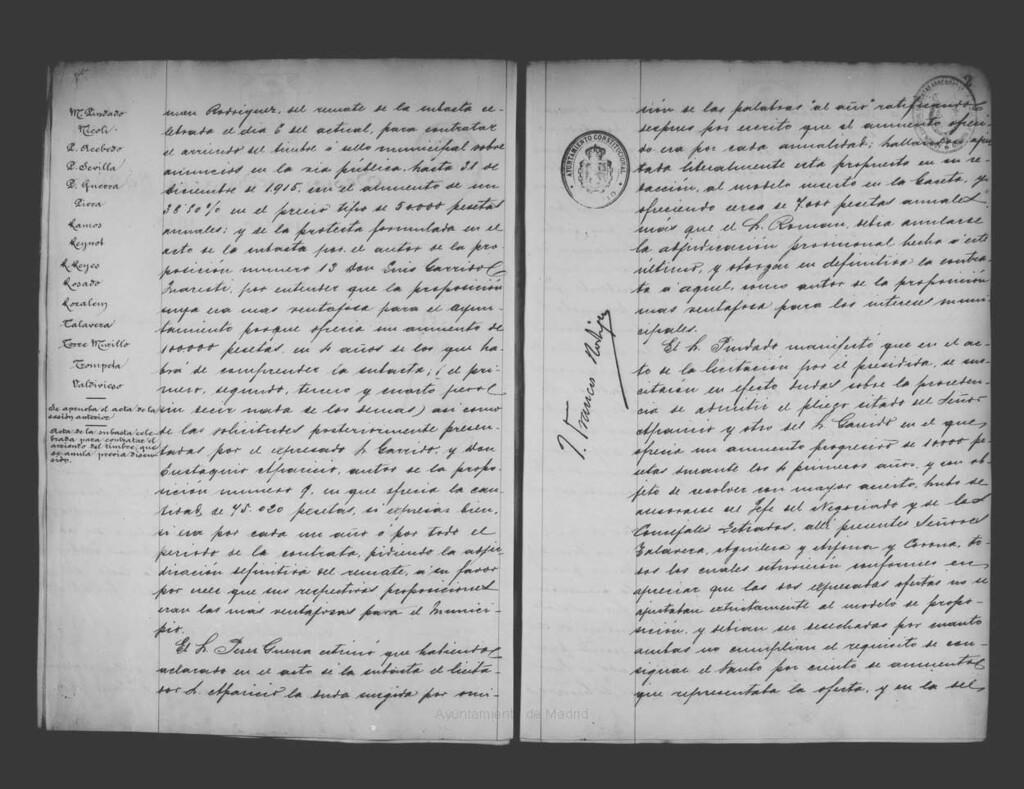 M. Pindado
Nicoli
P. Acebedo
P. Sevilla
P. Guerra
Piera
Ramos
Reynot
R. Reyes
Rosado
Rozalem
Talavera
Torre Murillo
Trompeta
Valdivieso
Se aprueba el acta de la
sesión anterior
Acta de la subasta cele
brada para contratar el
arriendo del timbre, que
se anula previa discu
sión.
man Rodriguez, del remate de la subasta ce-
lebrada el dia 6 del actual, para contratar
el arriendo del timbre ó sello municipal sobre
anuncios en la via pública, hasta 31 de
diciembre de 1915, con el aumento de un
38'10% en el precio tipo de 50.000 pesetas
anuales; y de la protesta formulada en el
acto de la subasta por el autor de la pro-
posición numero 13 Don Luis Garrido
Juaristi, por entender que la proposición
suya era mas ventajosa para el Ayun-
tamiento porque ofrecia un aumento de
100.000 pesetas, en 4 años de los que ha-
brá de comprender la subasta, (el pri-
mero, segundo, tercero y cuarto, pero
sin decir nada de los demas) asi como
de las solicitudes posteriormente presen-
tadas, por el expresado Sr. Garrido, y Don
Eustaquio Aparicio, autor de la propo-
sición numero 9, en que ofrecia la can-
tidad de 75.020 pesetas, sin expresar bien,
si era por cada un año ó por todo el
periodo de la contrata, pidiendo la adju-
dicación definitiva del remate, á su favor
por creer que sus respectivas proposiciones
eran las mas ventajosas para el Munici-
pio.
El Sr. Perez Guerra entinió que habiendo
aclarado en el acto de la subasta el licita-
dor Sr. Aparicio la duda surgida por omi-
AYUNTAMIENTO CONSTITUCIONAL
J. Francos Rodriguez
2
sión de las palabras "al año" ratificando
despues por escrito que el aumento ofreci-
do era por cada anualidad; hallandose ajus-
tada literalmente esta propuesta en su re-
dacción, al modelo inserto en la Gaceta, y
ofreciendo cerca de 7.000 pesetas anuales
mas que el Sr. Roman, debia anularse
la adjudicación provisional hecha á este
último, y otorgar en definitiva la contra-
ta á aquel, como autor de la proposición
mas ventajosa para los intereses muni-
cipales.
El Sr. Pindado manifestó que en el ac-
to de la licitación por él presidida, se sus-
citaron en efecto dudas sobre la proceden-
cia de admitir el pliego citado del Señor
Aparicio y otro del Sr. Garrido en el que
ofrecia un aumento progresivo de 10.000 pe-
setas durante los 4 primeros años, y con ob-
jeto de resolver con mayor acierto, hubo de
asesorarse del Jefe del Negociado y de los
Concejales Letrados, alli presentes Señores
Talavera, Aguilera y Arjona y Corona, to-
dos los cuales estuvieron conformes en
apreciar que las dos expresadas ofertas no se
ajustaban estrictamente al modelo de propo-
sición, y debian ser desechadas por cuanto
ambas no cumplian el requisito de con-
signar el tanto por ciento de aumento
que representaba la oferta, y en la del
Ayuntamiento de Madrid